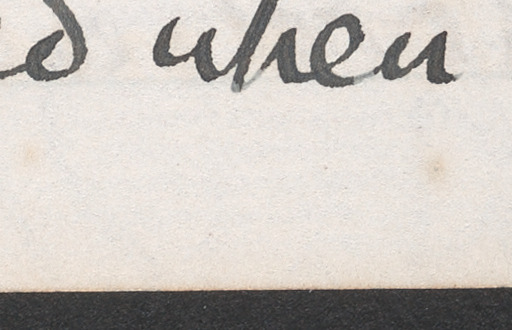 d when